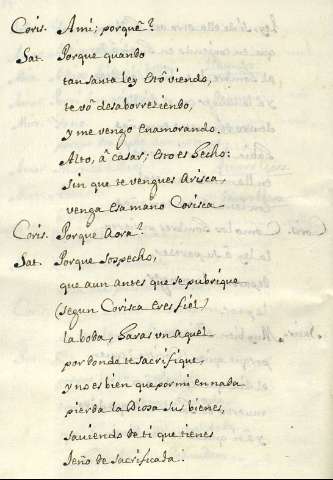 Coris. A mi; porquè?
Sat. Porque quando
tan santa Ley estô viendo,
te vô desaborreziendo,
y me vengo enamorando.
Alto, â casar; esto es hecho:
sin que te vengues arisca,
venga esa mano Corisca
Coris. Porque aora?
Sat. Porque sospecho,
que aun antes que se pubrique
(segun Corisca eres fiel)
la boda, haras un aquel
por donde te sacrifique,
y no es bien que por mi en nada
pierda la Diosa sus bienes,
saviendo de ti que tienes
seño de sacrificada.